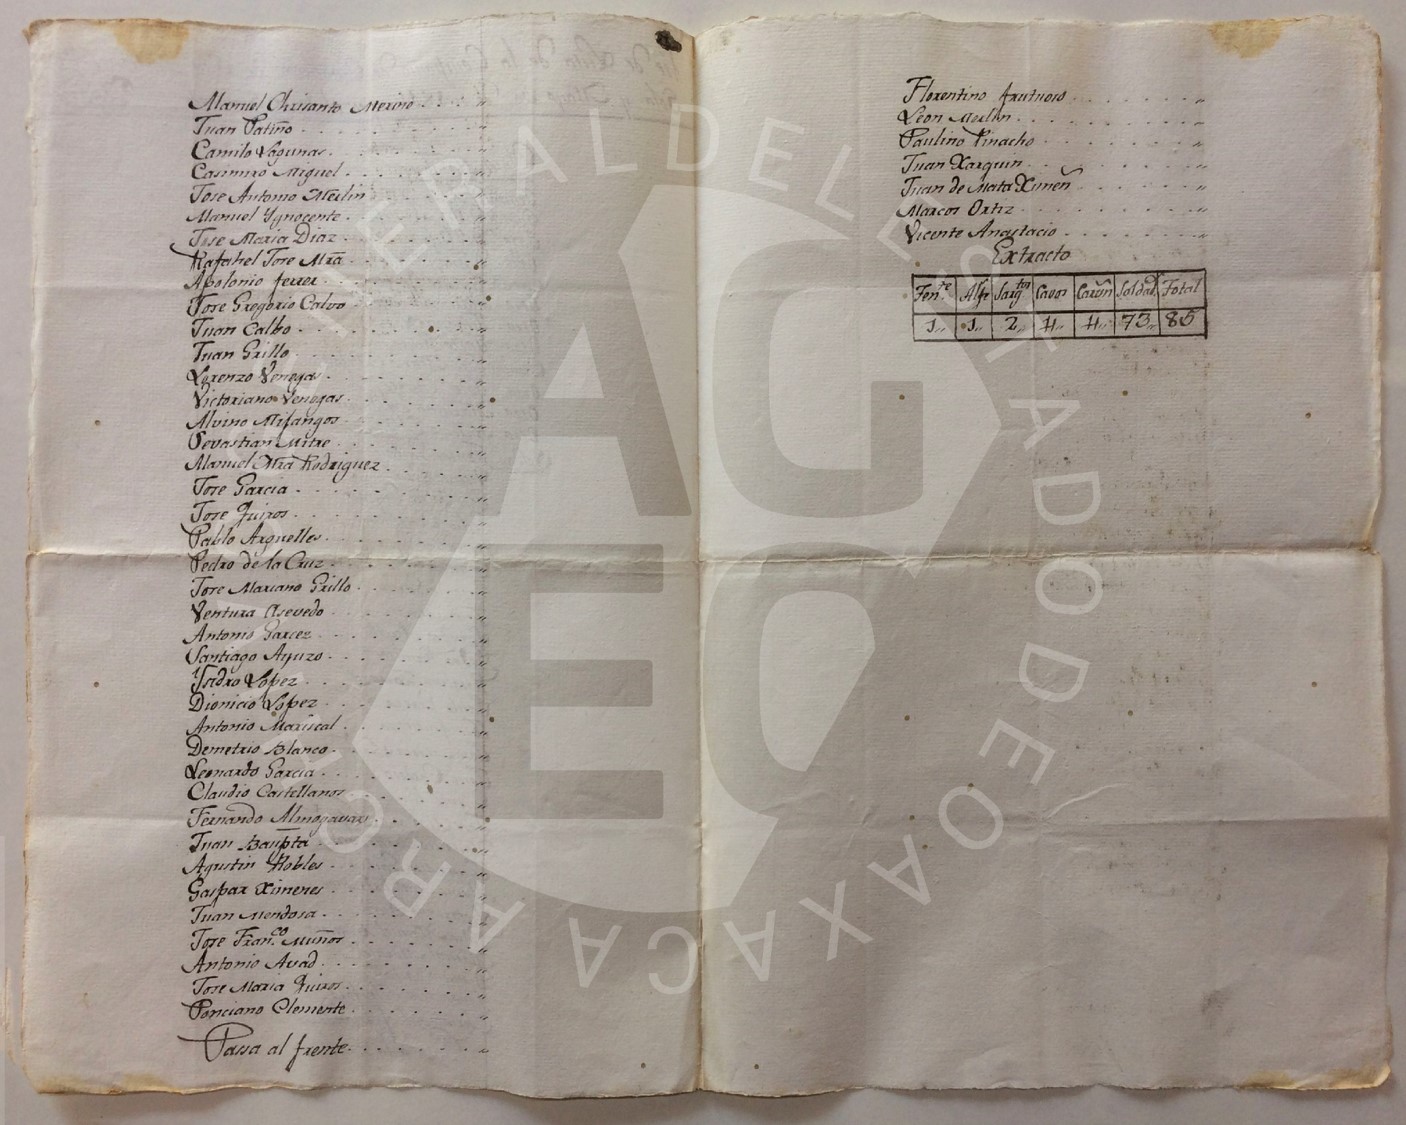 Manuel Chrisanto Merino
Juan Patiño
Camilo Lagunas
Casimiro Miguel
Jose Antonio Merlin
Manuel Ygnocente
Jose Maria Diaz
Rafahel Jose Mra
Apolonio ferrer
Jose Gregorio Calvo
Juan Calbo
Juan Grillo
Lorenzo Venegas
Victoriano Venegas
Alvino Mijangos
Sevastian Mitre
Manuel Mra Rodriguez
Jose Garcia
Jose Quiros
Pablo Arguelles
Pedro de la Cruz
Jose Mariano Grillo
Ventura Asevedo
Antonio Garcez
Santiago Ayuzo
Ysidro Lopez
Dionicio Lopez
Antonio Mariscal
Demetrio Blanco
Leonardo Garcia
Claudio Castellanos
Fernando Almogavar
Juan Baupta
Agustin Robles
Gaspar Ximenes
Juan Mendosa
Jose Fran.co Muños
Antonio Avad
Jose Maria Quiros
Ponciano Clemente
Passa al frente
Florentino frutuoso
Leon Merlin
Paulino Pinacho
Juan Xarquin
Juan de Mata Ximen
Marcos Ortiz
Vicente Anastacio
Extracto
Ten.te Alf Sarg.tos Cavos Carvn Soldad.s Total
1 1 2 4 4 73 85
ARCHIVO GENERAL DEL ESTADO DE OAXACA
AG
EO